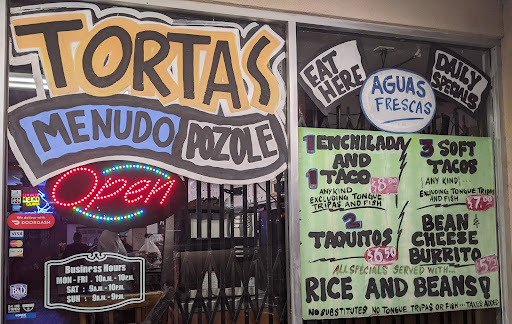 TORTAS
MENUDO
POZOLE
Open
We deliver with
DOORDASH
VISA
Business Hours
MON - FRI : 10A.M. - 10P.M.
SAT : 9A.M. - 10P.M.
SUN : 9A.M. - 9P.M.
EAT
HERE
AGUAS
FRESCAS
DAILY
SPECIALS
1 ENCHILADA
AND
1 TACO
ANY KIND
EXCLUDING TONGUE
TRIPAS AND FISH
2
TAQUITOS
$6.50
3 SOFT
TACOS
ANY KIND
EXCLUDING TONGUE TRIPAS
AND FISH
BEAN
CHEESE
BURRITO
ALL SPECIALS SERVED WITH...
RICE AND BEANS!
NO SUBSTITUTES NO TONGUE TRIPAS OR FISH... TAXES ADDED